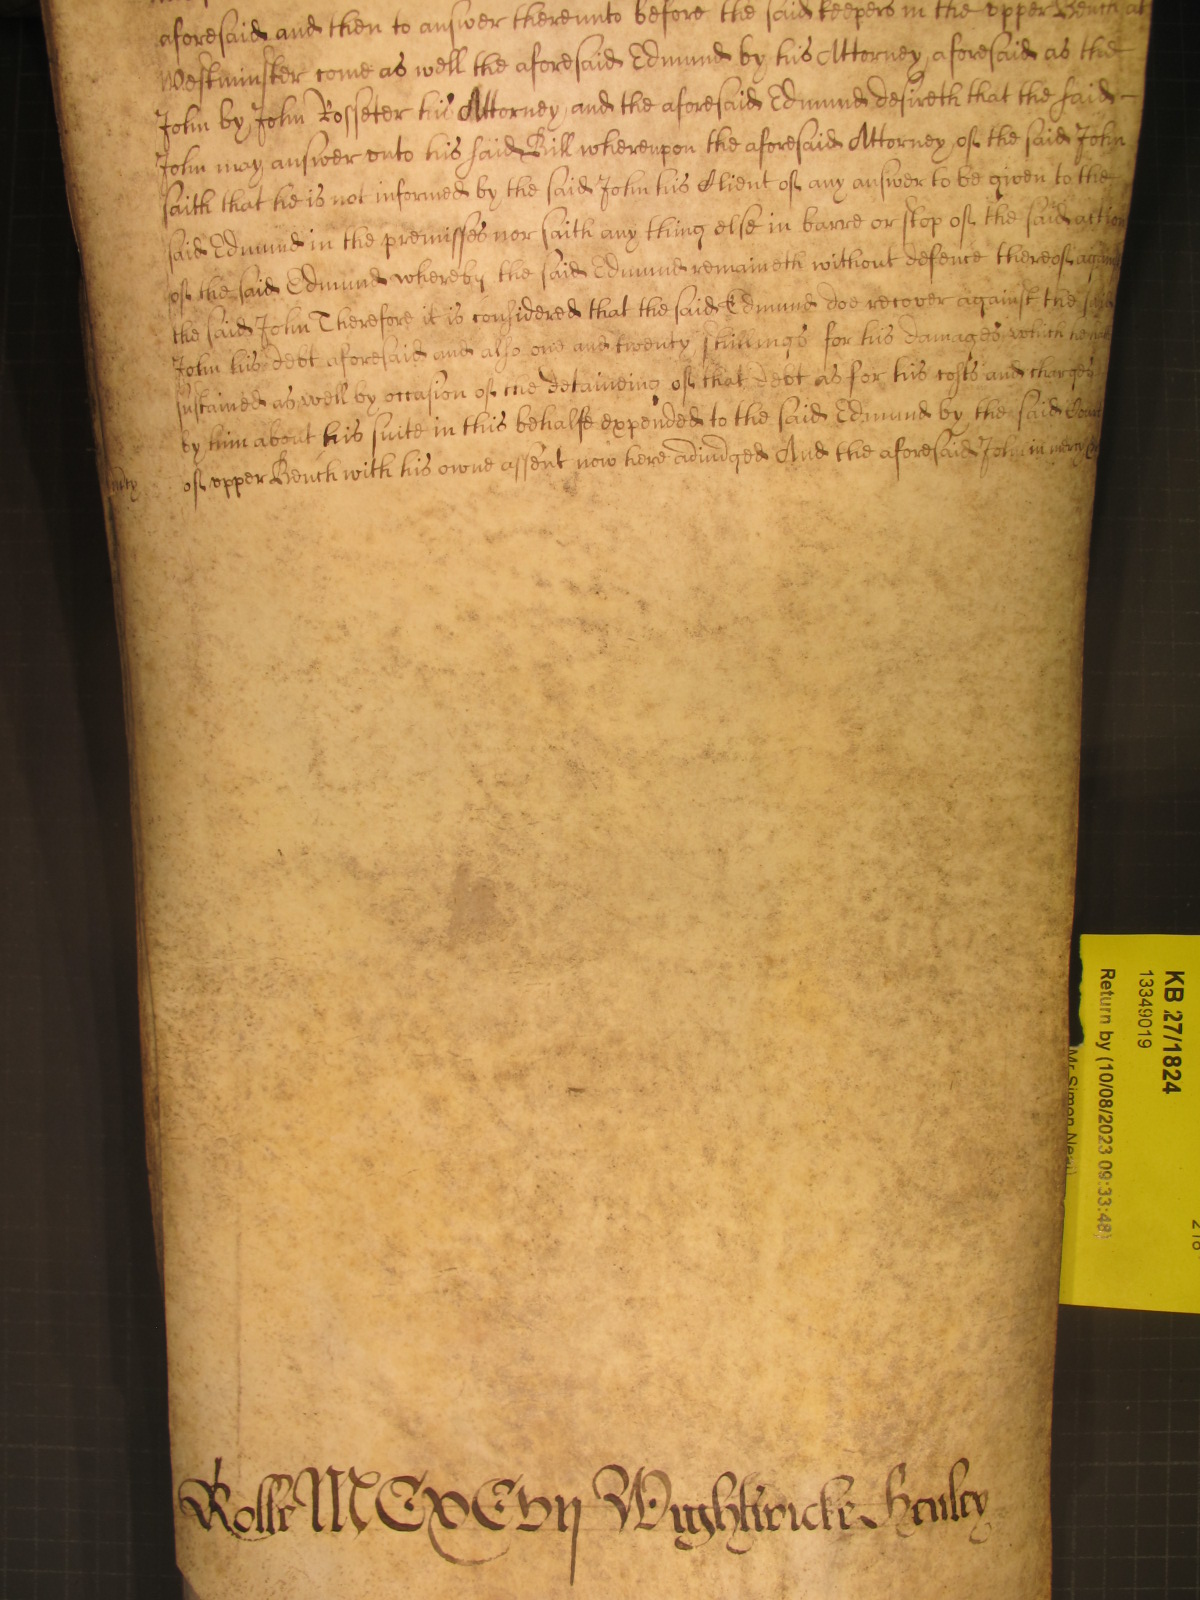 aforesaid and then to answer thereunto before the said keepers in the upper Bench at
Westminster come as well the aforesaid Edmund by his Attorney aforesaid as the
John by John Rosseter his Attorney and the aforesaid Edmund desireth that the said
John may answer unto his said Bill whereupon the aforesaid Attorney of the said John
saith that he is not informed by the said John his Client of any answer to be given to the
said Edmund in the premisses nor saith any thing else in barre or stop of the said action
of the said Edmund whereby the said Edmund remaineth without defence thereof against
the said John Therefore it is considered that the said Edmund doe recover against the said
John his debt aforesaid and also one and twenty shillings for his damages which he
sustained as well by occasion of the detaineing of that debt as for his costs and charges
by him about his suite in this behalfe expended to the said Edmund by the said Court
of upper Bench with his owne assent now here adiudged And the aforesaid John in mercy
Rolle MCxCvij Wightwicke Henley
KB 27/1824
13349019
Return by (10/08/2023 09:33:48)
Mr Simon Neal)